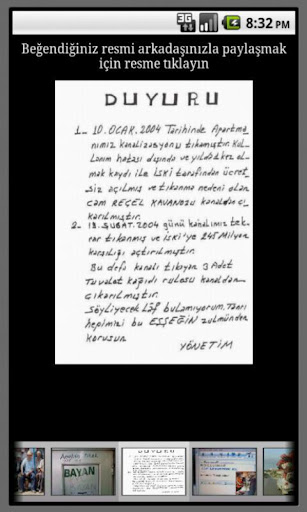 3G 8:32 PM
Beğendiğiniz resmi arkadaşınızla paylaşmak
için resme tıklayın
DUYURU
1_ 10.OCAK.2004 Tarihinde Apartma
nımız kanalizasyonu tıkamıştır. Kul
lanım hatası dışında ve yılda bir kez ol
mak kaydı ile İSKİ tarafından ücret
siz açılmış ve tıkanma nedeni olan
cam REÇEL KAVANOZU kanaldan çı
karılmıştır.
2- 18.ŞUBAT.2004 günü kanalımız tek
rar tıkanmış ve İSKİ'YE 245 Milyon
karşılığı açtırılmıştır.
Bu defa kanalı tıkayan 3 Adet
Tuvalet kağıdı rulosu kanaldan
çıkarılmıştır.
Söyliyecek Lâf bulamıyorum. Tanrı
hepimizi bu EŞŞEĞİN zulmünden
korusun.
YÖNETİM
BAYAN